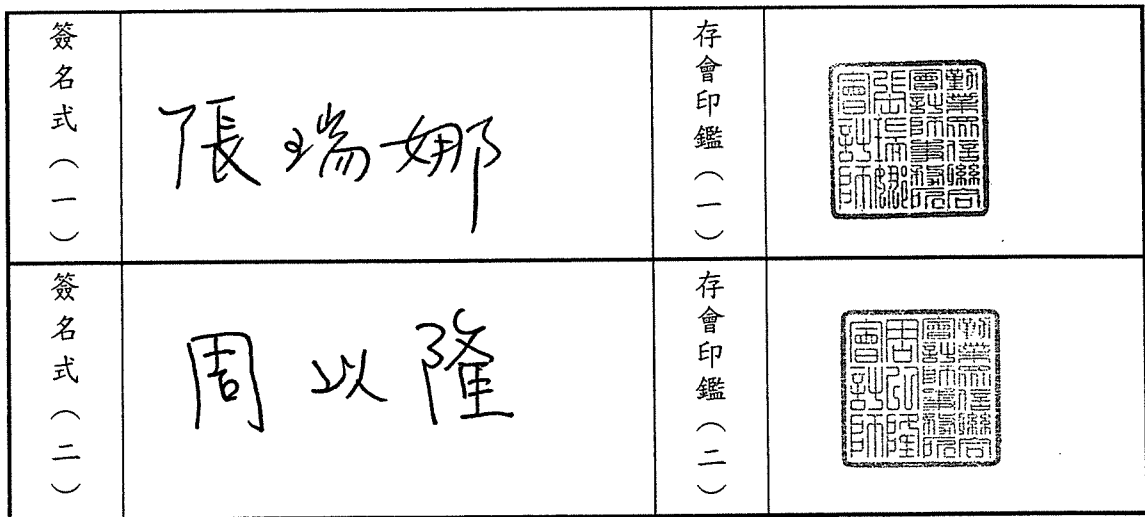 簽名式（一）
張瑞娜
存會印鑑（一）
勤業眾信聯合
會計師事務所
張瑞娜
會計師
簽名式（二）
周以隆
存會印鑑（二）
勤業眾信聯合
會計師事務所
周以隆
會計師